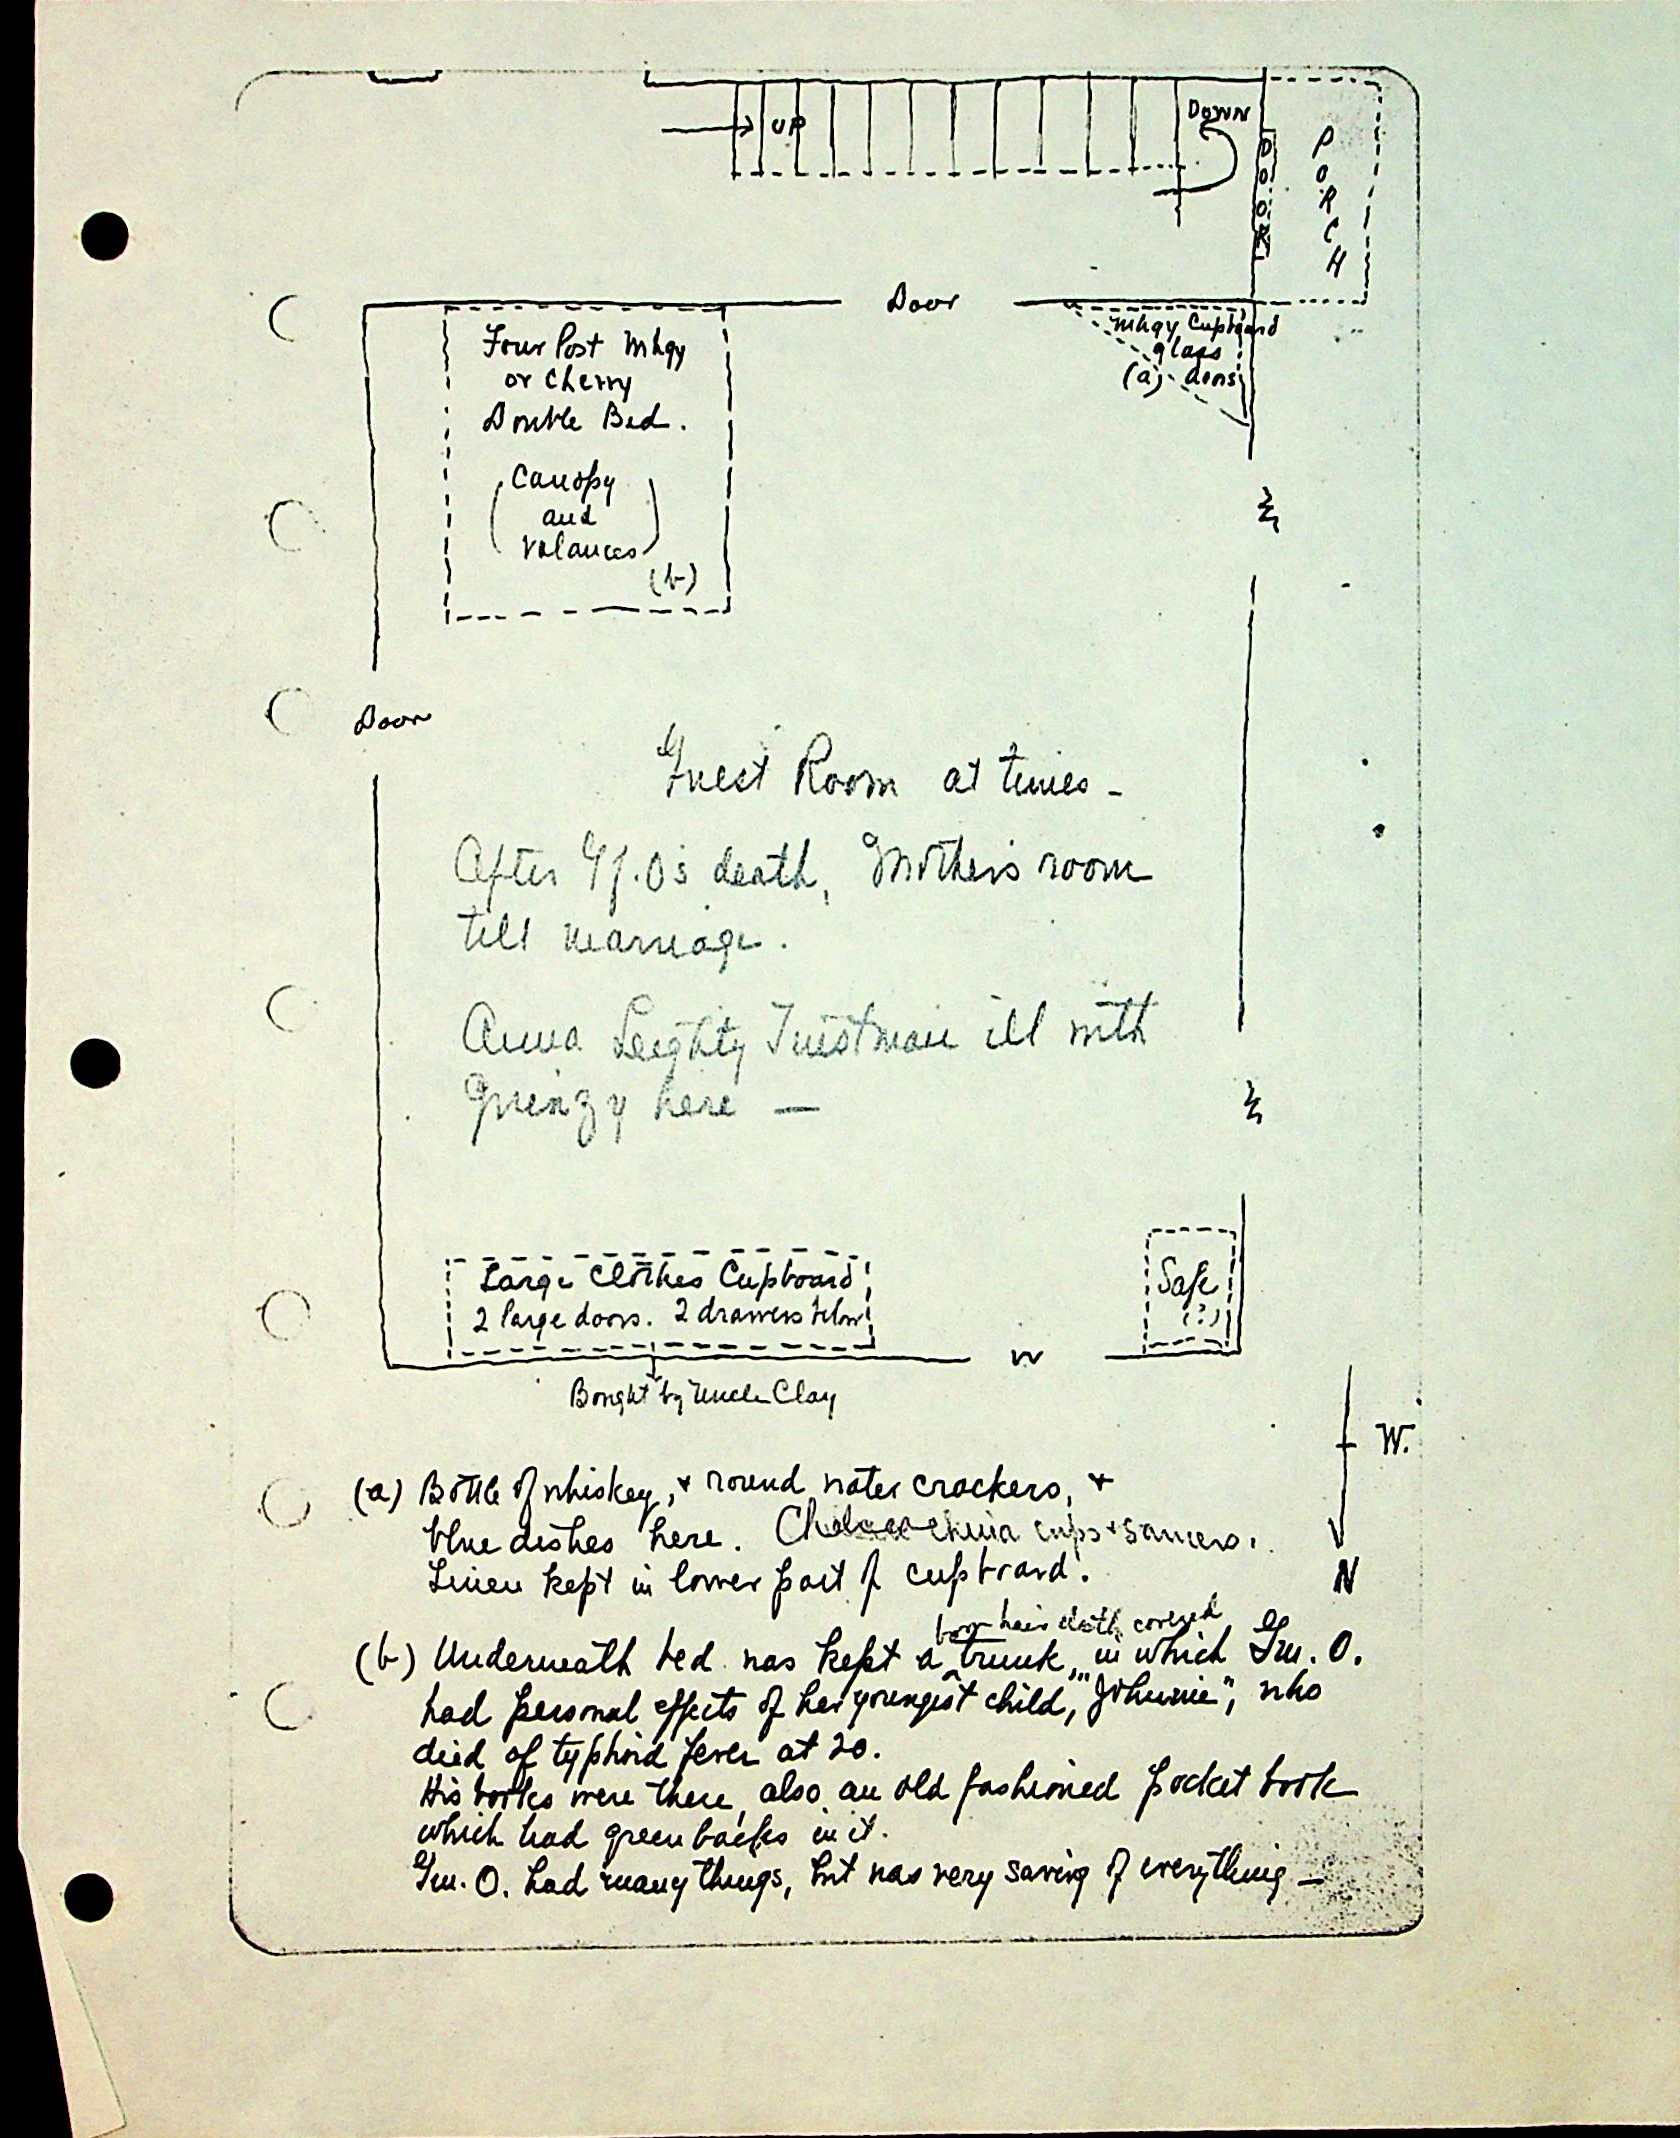 UP
DOWN
DOOR
PORCH
Door
Four Post Mhgy
or Cherry
Double Bed.
(Canopy
and
Valances)
(b)
Mhgy Cupboard
glass
(a) doors
Door
Guest Room at times -
After Gf. O's death, Mother's room
till marriage.
Anna Leighty Trustman ill with
Quinzy here —
Large Clothes Cupboard
2 large doors. 2 drawers below
Safe
(?)
W
Bought by Uncle Clay
W.
N
(a) Bottle of whiskey, + round water crackers, +
blue dishes here. china cups + saucers.
Linen kept in lower part of cupboard.
hair cloth covered
(b) Underneath bed was kept a trunk, in which Gm. O.
had personal effects of her youngest child, "Johnnie", who
died of typhoid fever at 20.
His books were there, also an old fashioned pocket book
which had greenbacks in it.
Gm. O. had many things, but was very saving of everything —